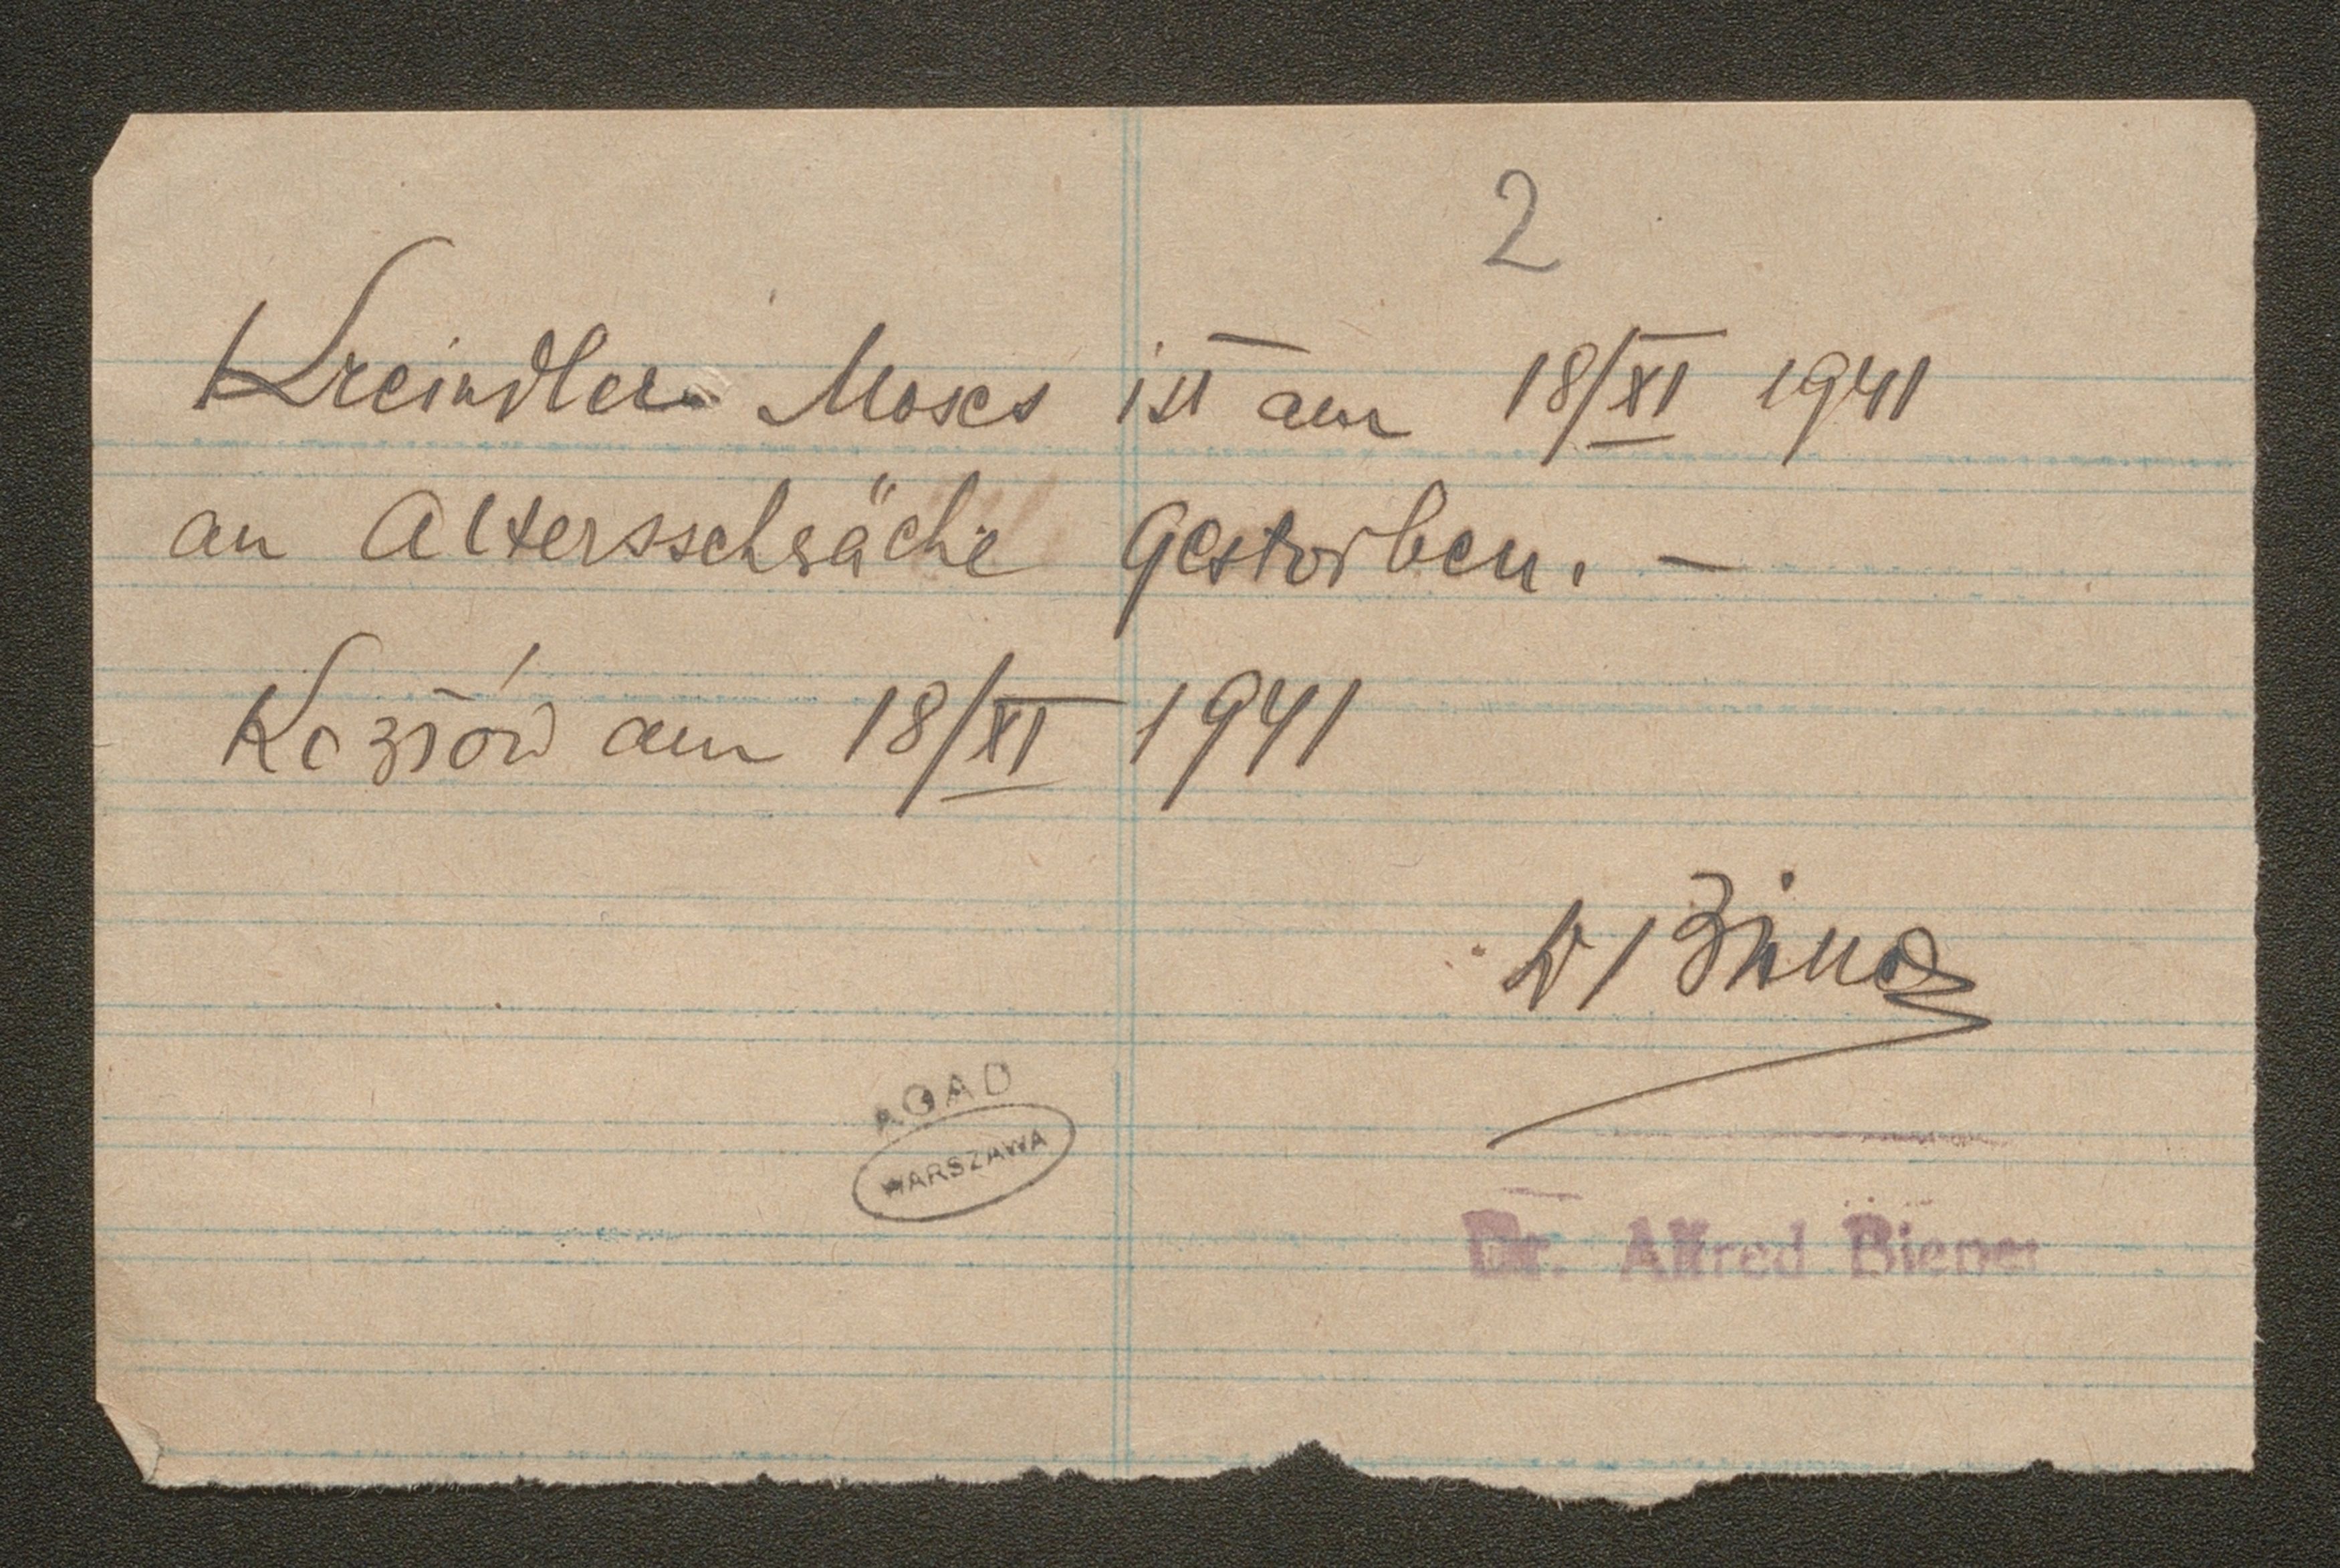 2
Kreindler Moses ist am 18/XI 1941
an Altersschwäche gestorben. –
am 18/XI 1941
Dr
AGAD
WARSZAWA
Dr. Alfred Biener